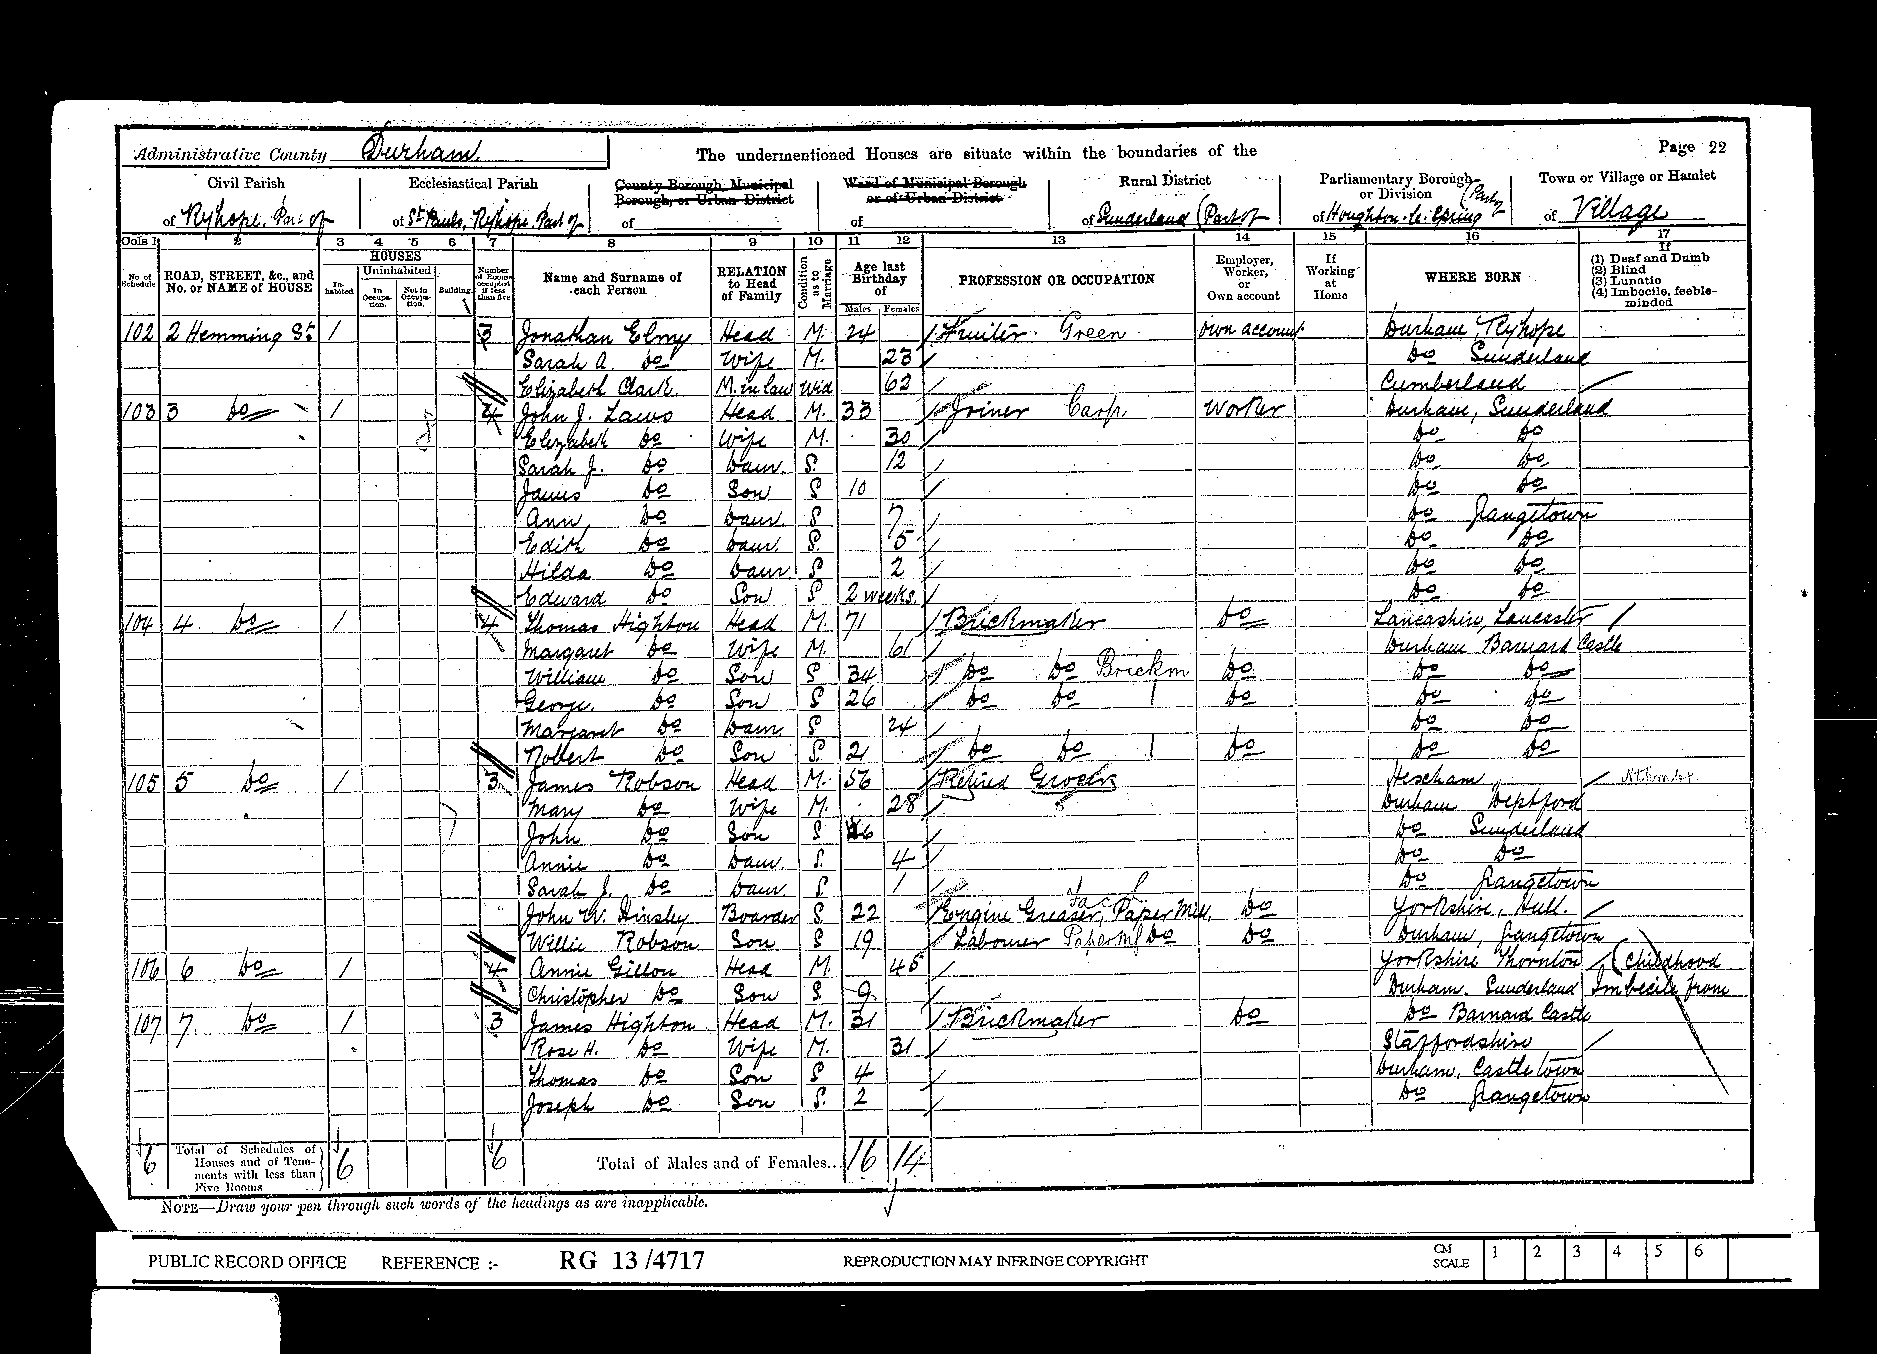 Administrative County Durham
The undermentioned Houses are situate within the boundaries of the
Page 22
Civil Parish
of Ryhope. Part of
Ecclesiastical Parish
of St Pauls, Ryhope. Part of
County Borough, Municipal Borough, or Urban District
of
Ward of Municipal Borough or of Urban District
of
Rural District
of Sunderland (Part of
Parliamentary Borough or Division
of Houghton-le-Spring (Part of
Town or Village or Hamlet
of Village
Cols 1 2 3 4 5 6 7 8 9 10 11 12 13 14 15 16 17
No. of Schedule
ROAD, STREET, &c., and No. or NAME of HOUSE
HOUSES
Inhabited
Uninhabited
In Occupation.
Not in Occupation.
Building.
Number of Rooms occupied if less than five
Name and Surname of each Person
RELATION to Head of Family
Condition as to Marriage
Age last Birthday of
Males Females
PROFESSION OR OCCUPATION
Employer, Worker, or Own account
If Working at Home
WHERE BORN
If
(1) Deaf and Dumb
(2) Blind
(3) Lunatic
(4) Imbecile, feeble-minded
102 2 Hemming St 1 3 Jonathan Elmy Head M. 24 Fruiter Green own account Durham, Ryhope
Sarah A. do Wife M. 23 do Sunderland
Elizabeth Clark M. in law Wid 62 Cumberland
103 3 do 1 4 John J. Laws Head M. 33 Joiner Carp. Worker Durham, Sunderland
Elizabeth do Wife M. 30 do do
Sarah J. do Daur. S. 12 do do
James do Son S 10 do do
Ann, do Daur. S 7 do Grangetown
Edith do Daur. S. 5 do do
Hilda do Daur S 2 do do
Edward do Son S 2 weeks. do do
104 4 do 1 4 Thomas Highton Head M. 71 Brickmaker do Lancashire, Lancaster
Margaret do Wife M. 61 Durham Barnard Castle
William do Son S 34 do do Brickm do do do
George. do Son S 26 do do do do do
Margaret do Daur S 24 do do
Robert do Son S. 21 do do do do do
105 5 do 1 3 James Robson Head M. 56 Retired Grocer Hexham
Mary do Wife M. 28 Durham Deptford
John do Son S 6 do Sunderland
Annie do Daur. S. 4 do do
Sarah J. do Daur S. 1 do Grangetown
John W. Hinsley Boarder S 22 Engine Greaser, Paper Mill, do Yorkshire, Hull.
Willie Robson Son S 19 Labourer Paper Ml do do Durham, Grangetown
106 6 do 1 4 Annie Gillon Head M. 45 Yorkshire Thornton (Childhood
Christopher do Son S 9 Durham. Sunderland Imbecile from
107 7. do 1 3 James Highton Head M. 31 Brickmaker do do Barnard Castle
Rose H. do Wife M. 31 Staffordshire
Thomas do Son S 4 Durham, Castletown
Joseph do Son S. 2 do Grangetown
6 Total of Schedules of Houses and of Tenements with less than Five Rooms 6 6 Total of Males and of Females... 16 14
NOTE—Draw your pen through such words of the headings as are inapplicable.
PUBLIC RECORD OFFICE REFERENCE :- RG 13/4717 REPRODUCTION MAY INFRINGE COPYRIGHT CM SCALE 1 2 3 4 5 6